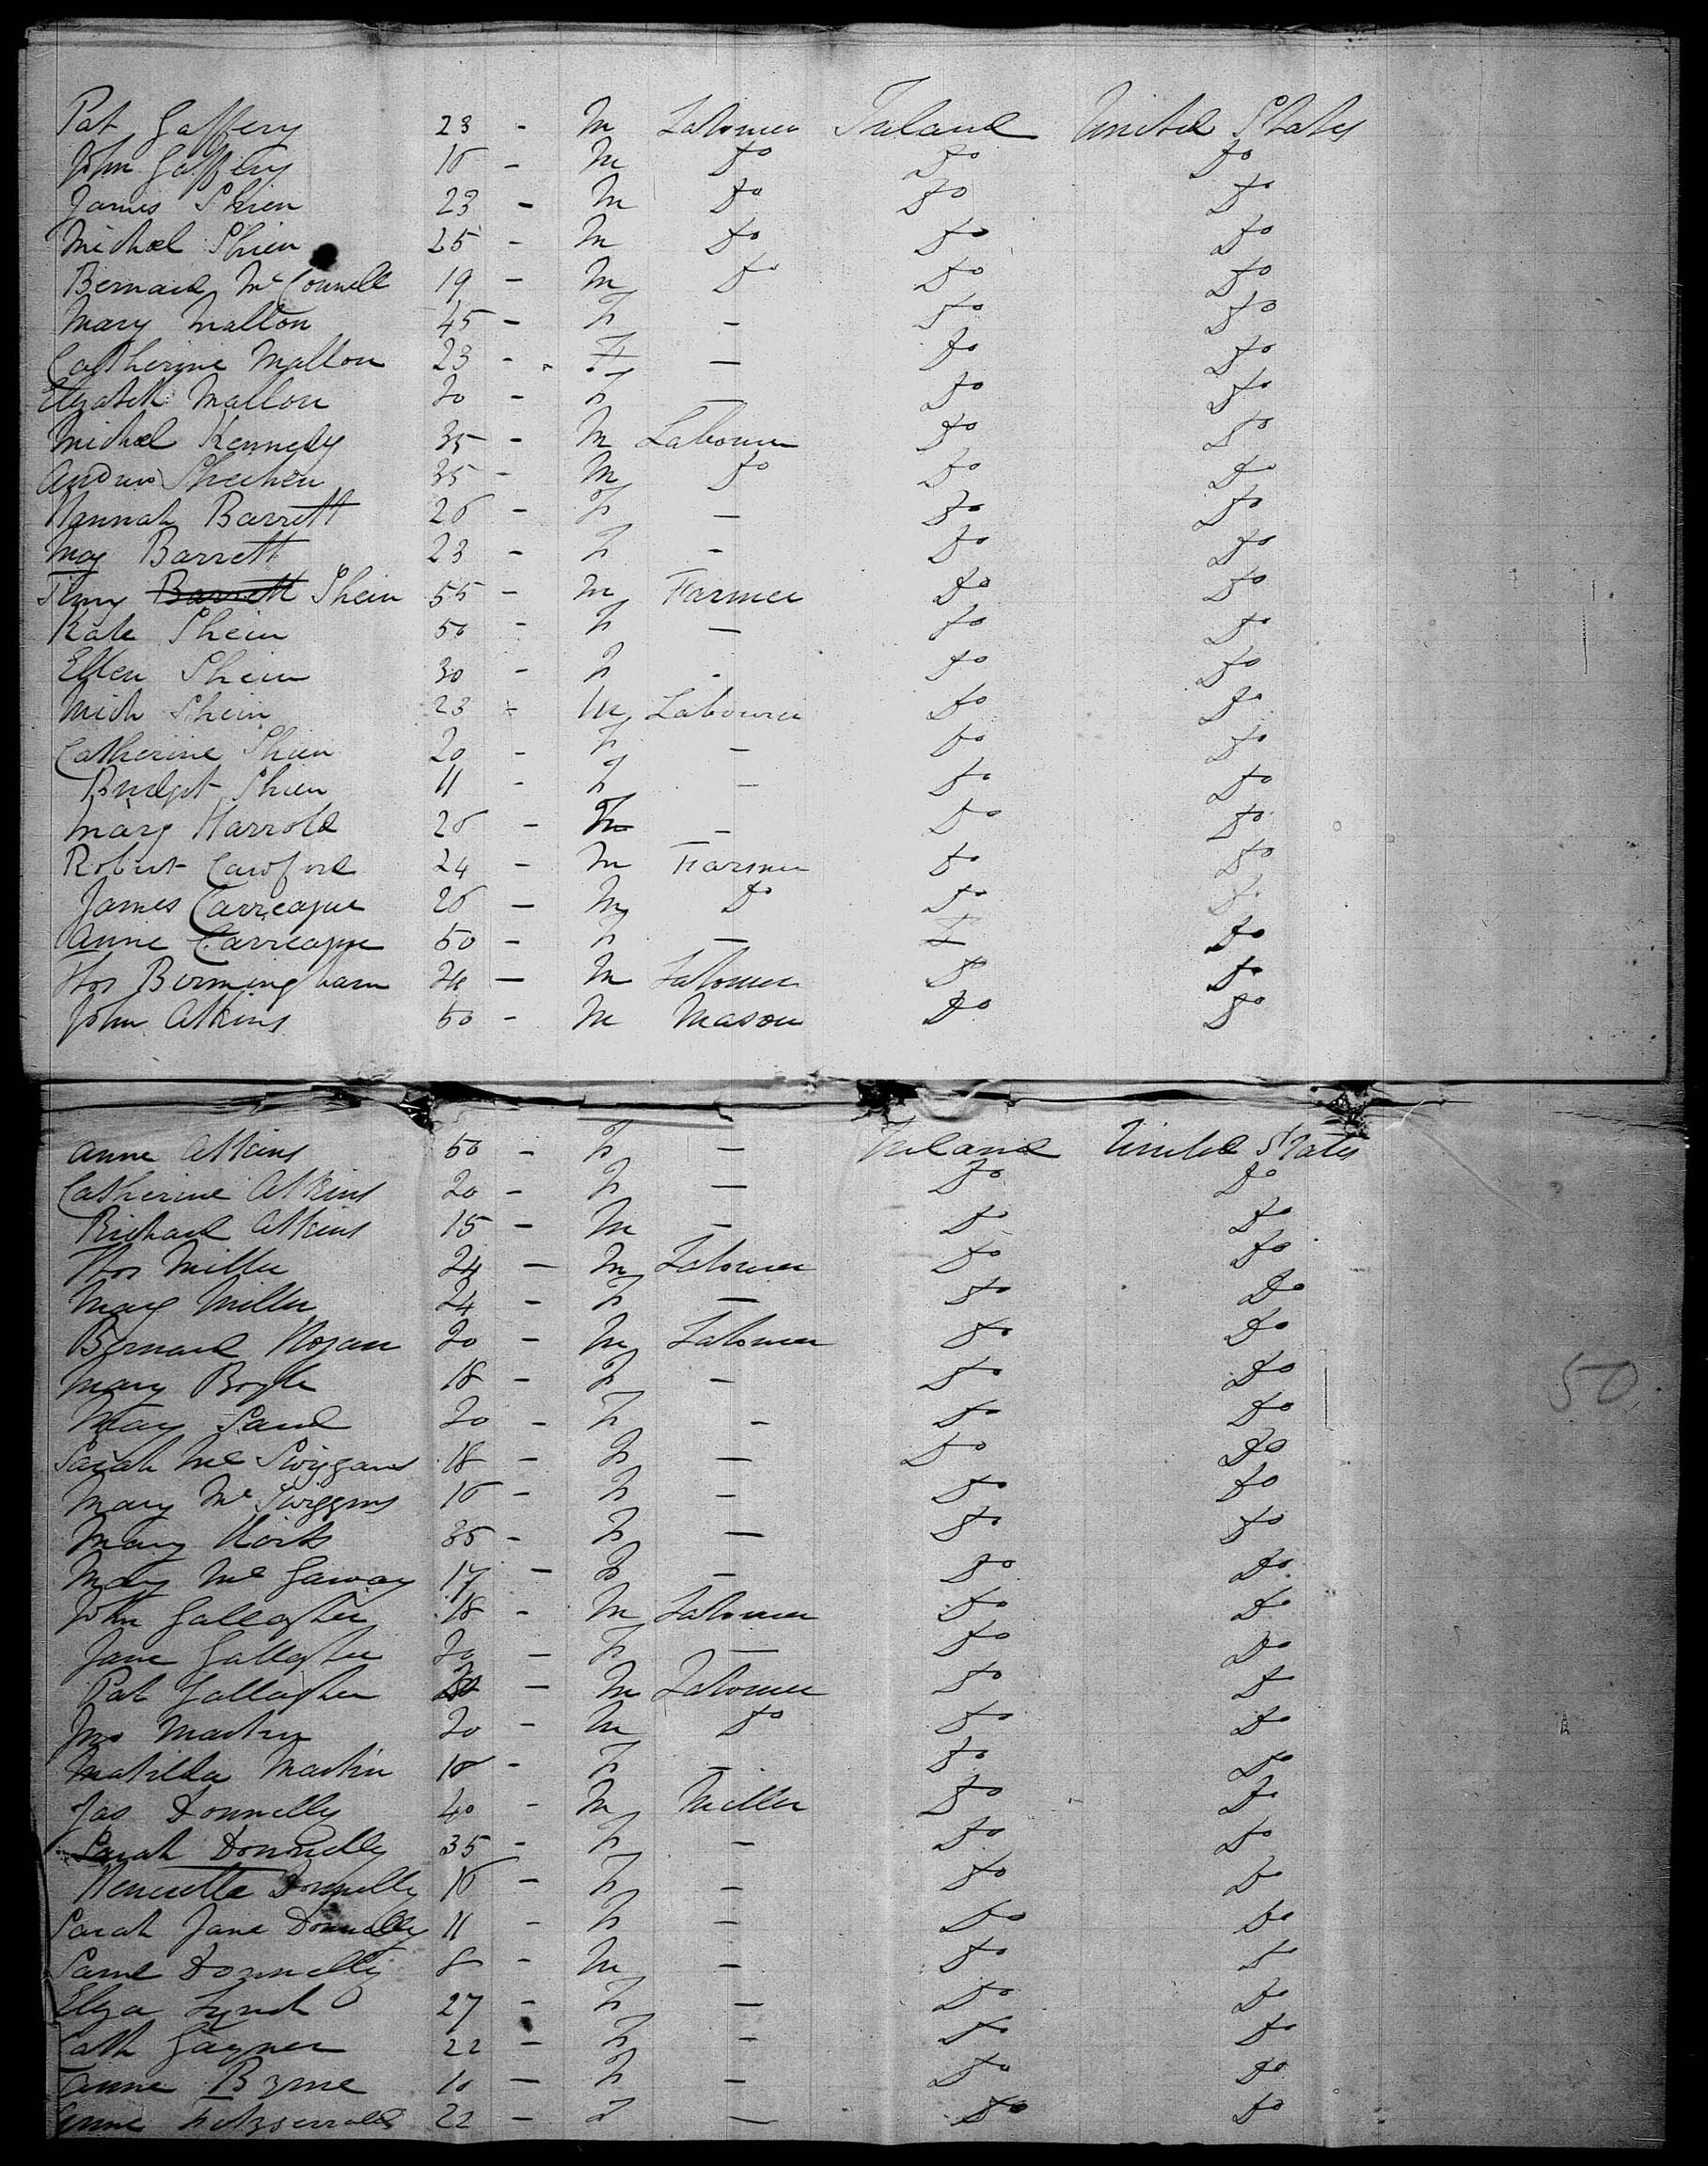 Pat Gaffery 23 - M Labourer Ireland United States
John Gaffery 16 - M Do Do Do
James Shien 23 - M Do Do Do
Michael Shien 25 - M Do Do Do
Bernard McConnell 19 - M Do Do Do
Mary Mallon 45 - F - Do Do
Catherine Mallon 23 - F - Do Do
Elizabeth Mallon 20 - F - Do Do
Michael Kennedy 35 - M Labourer Do Do
Andrew Sheehen 35 - M Do Do Do
Hannah Barrett 26 - F - Do Do
May Barrett 23 - F - Do Do
Barrett Shein 55 - M Farmer Do Do
Kate Shein 50 - F - Do Do
Ellen Shein 30 - F - Do Do
Mich Shein 23 - M Labourer Do Do
Catherine Shien 20 - F - Do Do
Bridget Shien 11 - F - Do Do
Mary Harrold 26 - F - Do Do
Robert Cawford 24 - M Farmer Do Do
James Carreague 26 - M Do Do Do
Anne Carreague 50 - F - Do Do
Thos Birmingham 24 - M Labourer Do Do
John Atkins 50 - M Mason Do Do
Anne Atkins 50 - F - Ireland United States
Catherine Atkins 20 - F - Do Do
Richard Atkins 15 - M - Do Do
Thos Miller 24 - M Labourer Do Do
Mary Miller 24 - F - Do Do
Bernard Hogan 20 - M Labourer Do Do
Mary Boyle 18 - F - Do Do
May 20 - F - Do Do
Sarah Mc Swiggans 18 - F - Do Do
Mary Mc Swiggins 16 - F - Do Do
50
Mary 35 - F - Do Do
Mary Mc Garvay 17 - F - Do Do
John Gallagher 18 - M Labourer Do Do
Jane Gallagher 20 - F - Do Do
Pat Gallagher - M Labourer Do Do
Jno Martin 20 - M Do Do Do
Matilda Martin 18 - F - Do Do
Jas Donnelly 40 - M Miller Do Do
Sarah Donnelly 35 - F - Do Do
Henrietta Donnelly 16 - F - Do Do
Sarah Jane Donnelly 11 - F - Do Do
Saml Donnelly 8 - M - Do Do
Eliza Lynch 27 - F - Do Do
Cath Gaynor 22 - F - Do Do
Anne Byrne 10 - F - Do Do
Anne Fitzgerrald 22 - F - Do Do